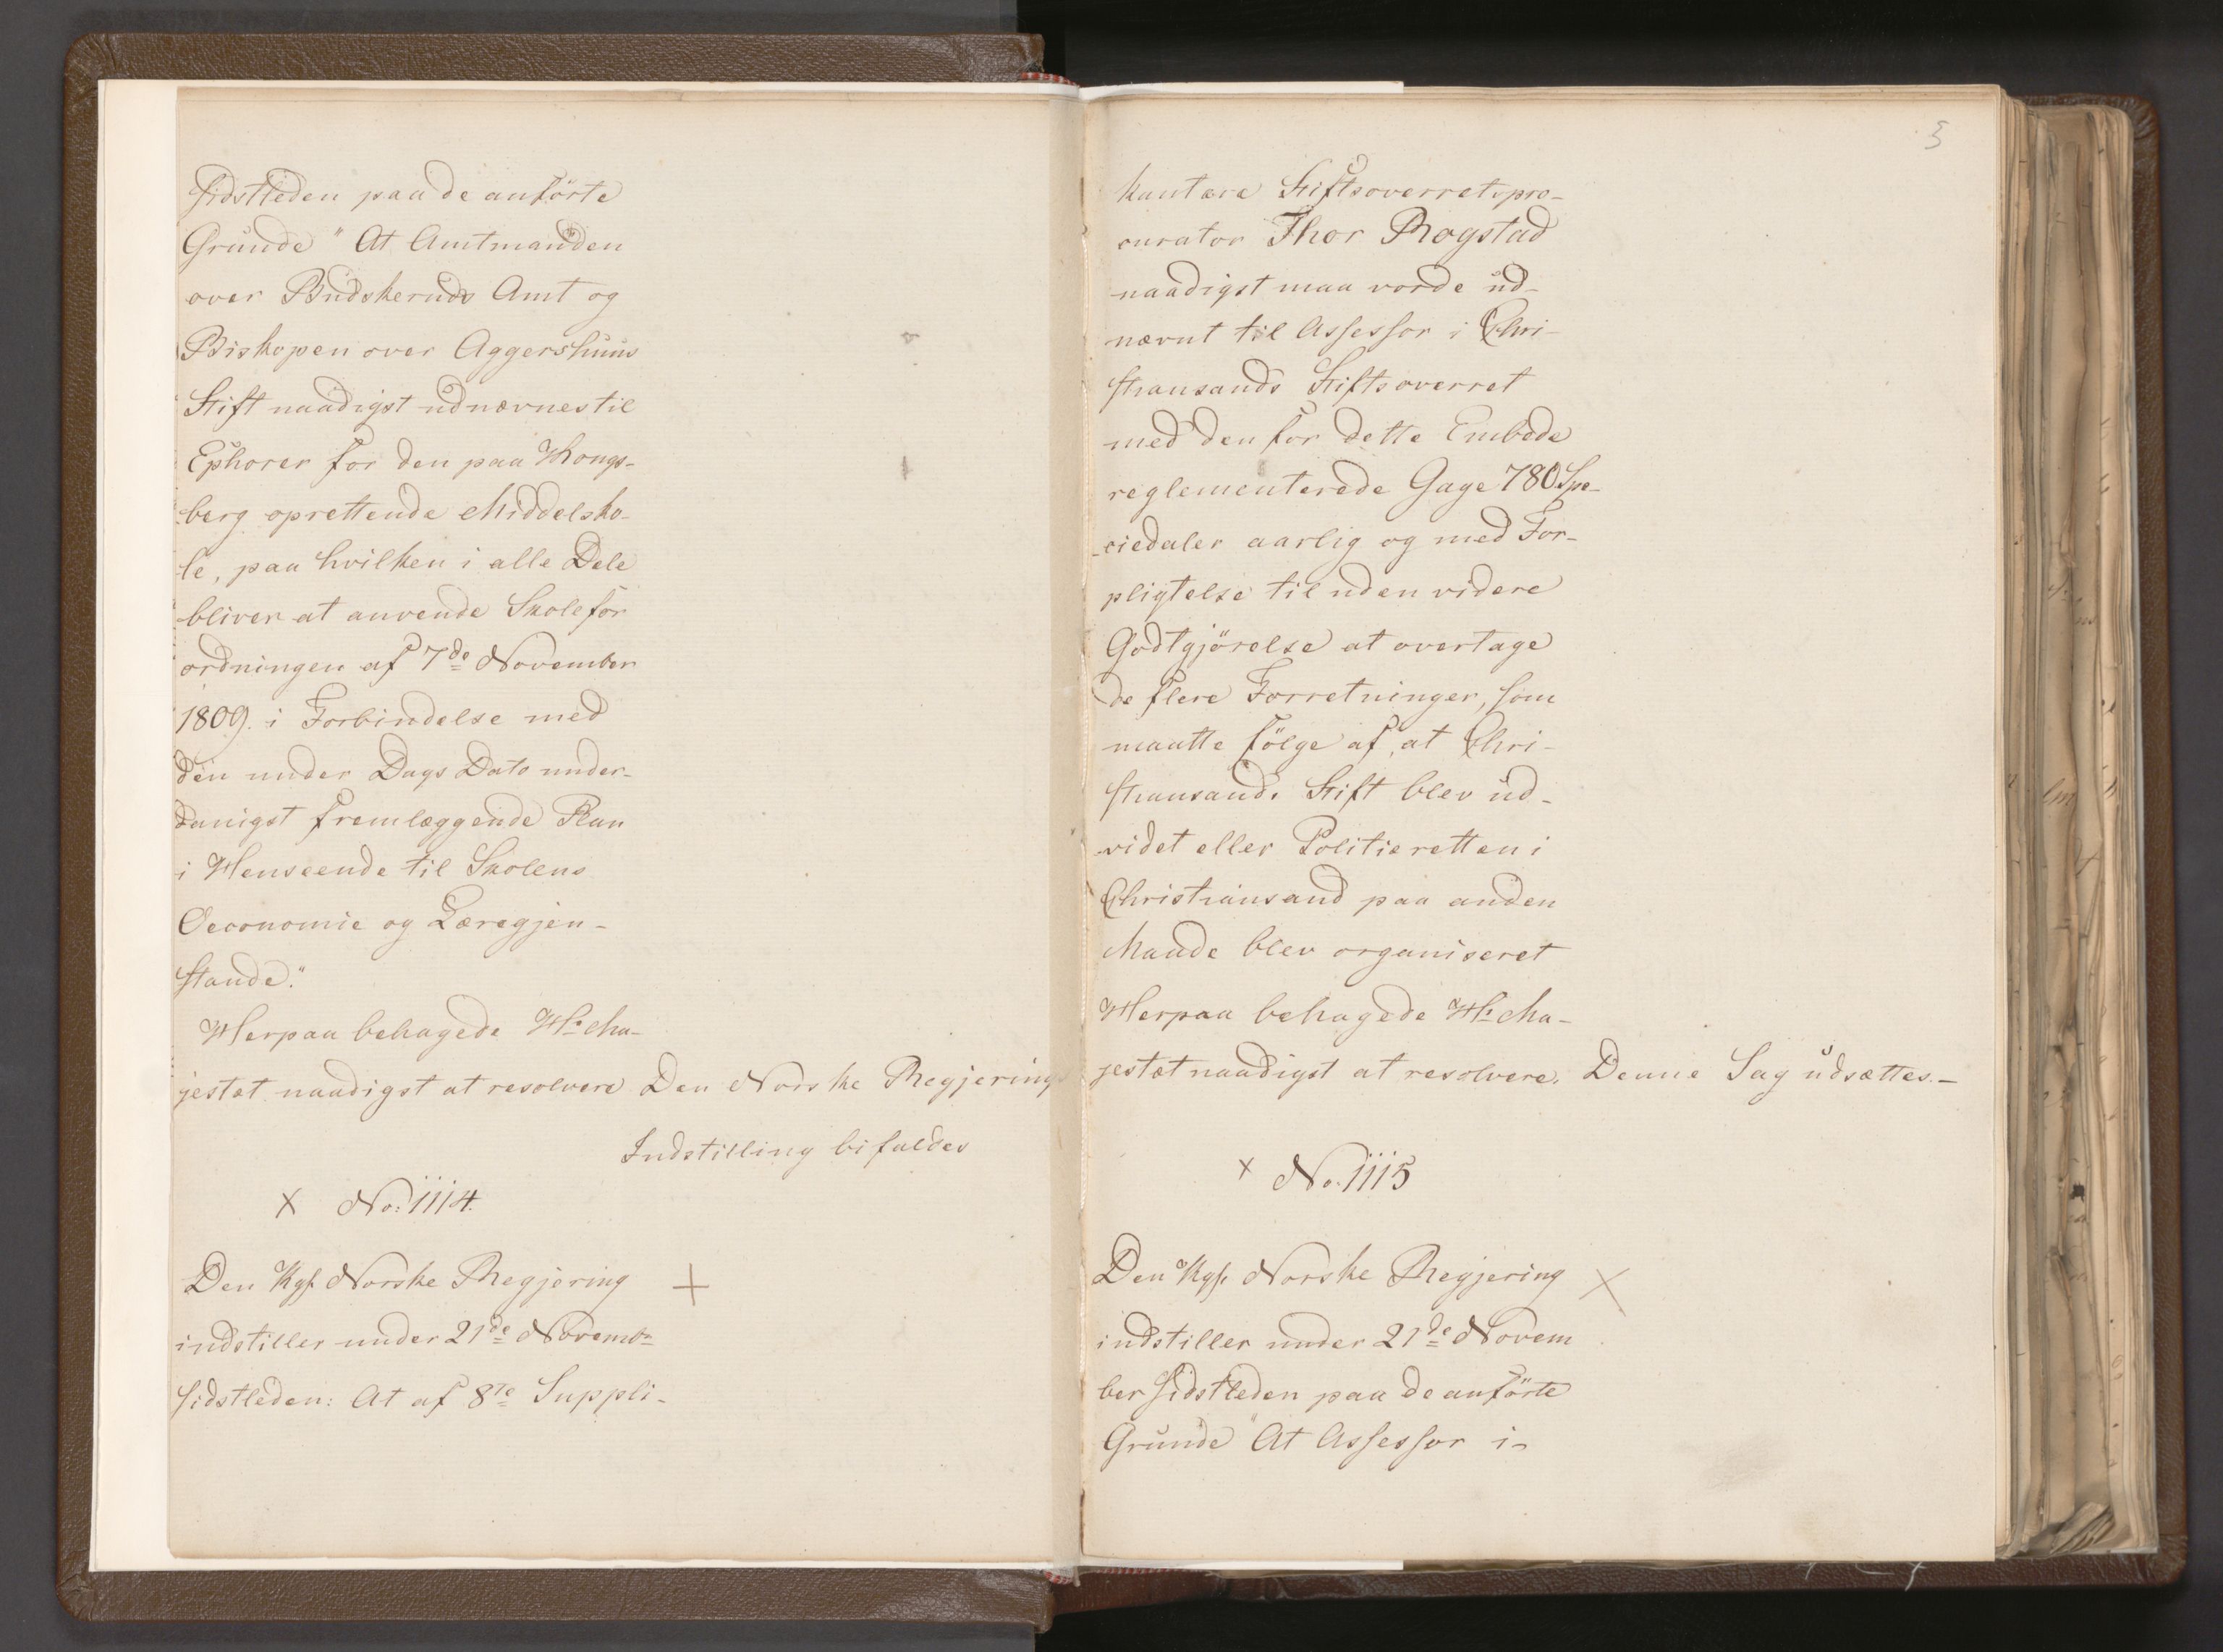 sidstleden paa de anförte
Grunde " At Amtmanden
over Budskeruds Amt og
Biskopen over Aggershuus
Stift naadigst udnævnes til
Ephorer for den paa Kongs-
berg oprettende Middelsko-
le, paa hvilken i alle Dele
bliver at anvende Skolefor
ordningen af 7de November
1809. i Forbindelse med
den under Dags Dato under-
danigst fremlæggende Plan
i Henseende til Skolens
Oeconomie og Læregjen-
stande."
Herpaa behagede Hs Ma-
jestæt naadigst at resolvere Den Norske Regjerings
Indstilling bifaldes
x No: 1114.
Den Kgl. Norske Regjering +
indstiller under 21de Novembr
sidstleden: At af 8te Suppli-
3
kantere Stiftsoverretspro-
curator Thor Rogstad
naadigst maa vorde ud-
nævnt til Assessor i Chri-
stiansands Stiftsoverret
med den for dette Embede
reglementerede Gage 780 Spe-
ciedaler aarlig og med For-
pligtelse til uden videre
Godtgjörelse at overtage
de flere Forretninger, som
maatte fölge af, at Chri-
stiansands Stift blev ud-
videt eller Politieretten i
Christiansand paa anden
Maade blev organiseret
Herpaa behagede Hs Ma-
jestæt naadigst at resolvere. Denne Sag udsættes.-
x No. 1115
Den Kgl. Norske Regjering x
indstiller under 21de Novem
ber sidstleden paa de anförte
Grunde "At Assessor i